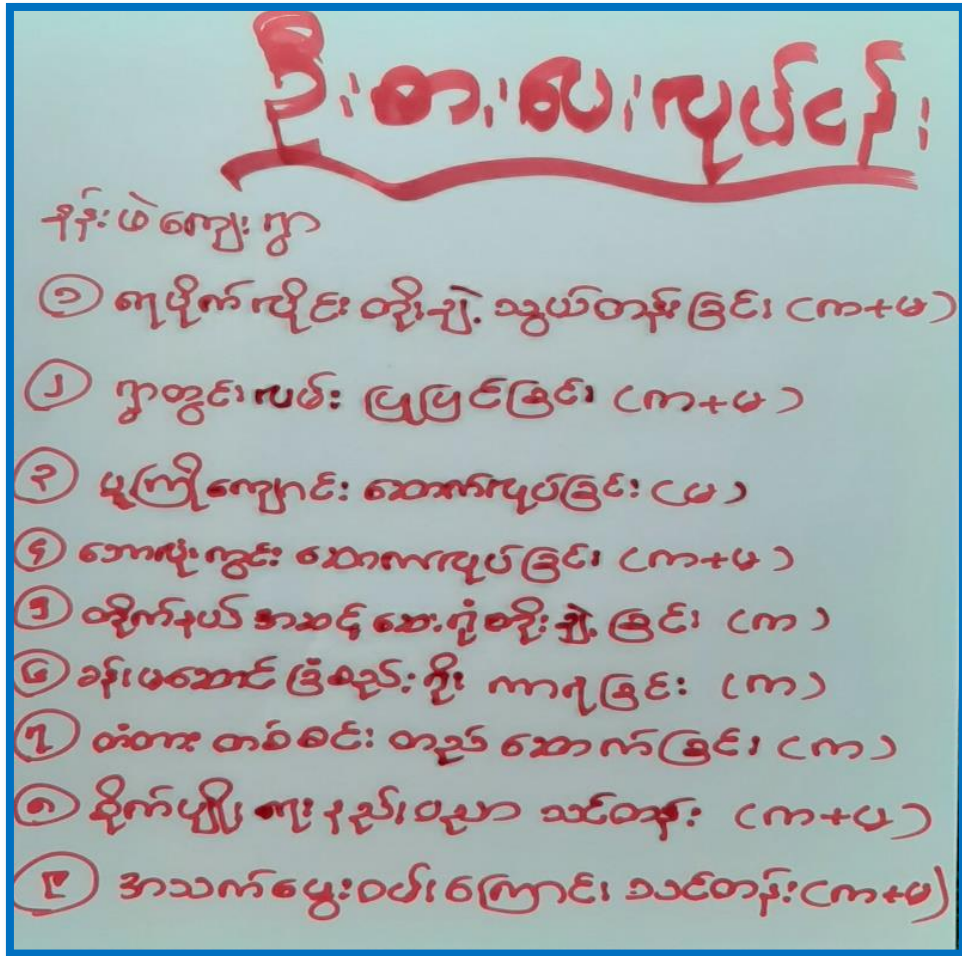 ဦးစားပေးလုပ်ငန်း
နန်းဖဲကျေးရွာ
၁ ရေပိုက်လိုင်း တိုးချဲ့ သွယ်တန်းခြင်း (က+မ)
၂ ရွာတွင်းလမ်း ပြုပြင်ခြင်း (က+မ)
၃ မူကြိုကျောင်း ဆောက်လုပ်ခြင်း (မ)
၄ ဘောလုံးကွင်း ဆောက်လုပ်ခြင်း (က+မ)
၅ တိုက်နယ် အဆင့် ဆေးရုံ တိုးချဲ့ ခြင်း (က)
၆ ခန်းမဆောင် ခြံစည်းရိုး ကာရံခြင်း (က)
၇ တံတား တစ်စင်း တည် ဆောက်ခြင်း (က)
၈ စိုက်ပျိုးရေးနည်းပညာ သင်တန်း (က+မ)
၉ အသက်မွေးဝမ်းကြောင်း သင်တန်း (က+မ)